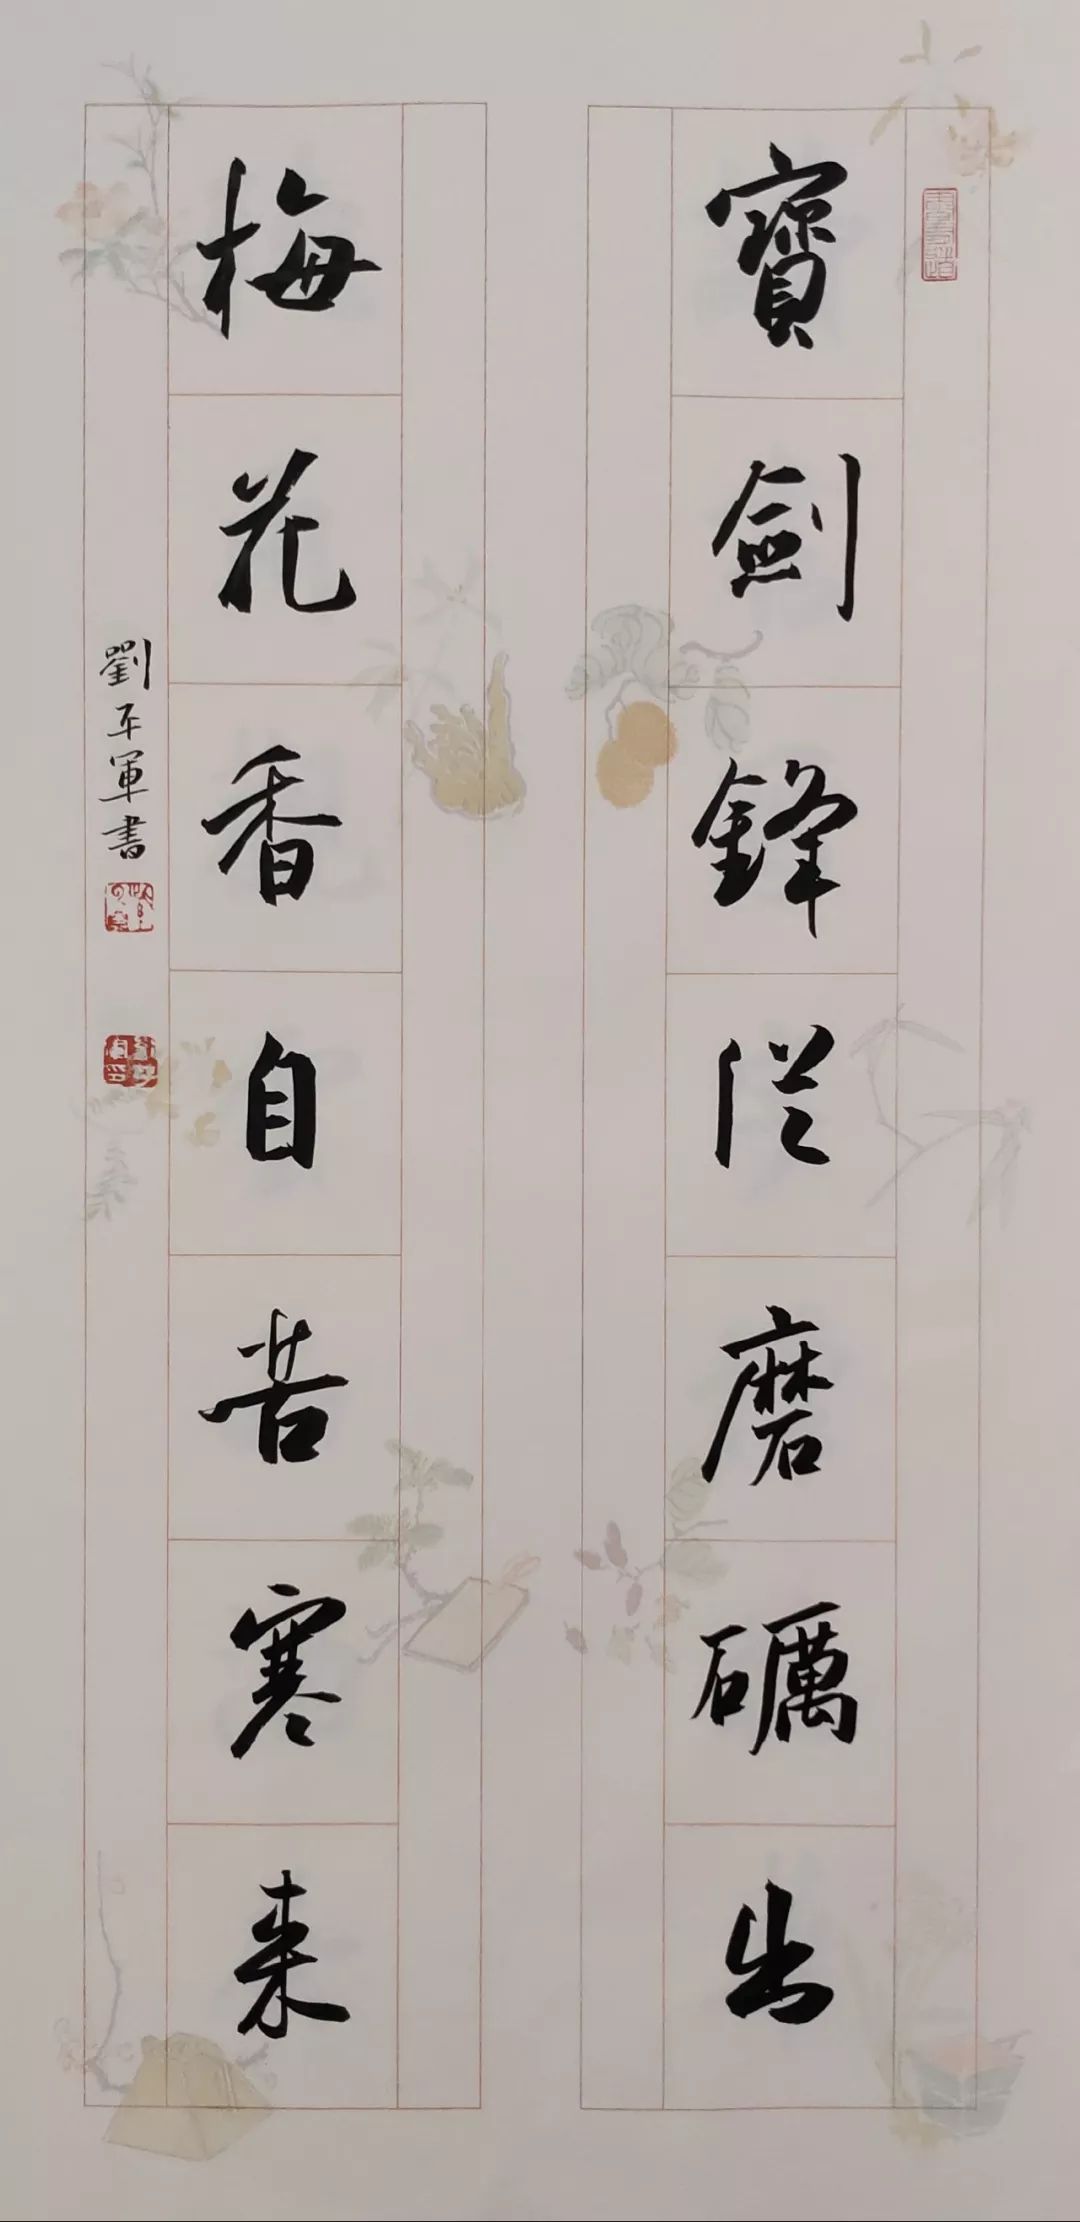 寶劍鋒從磨礪出
梅花香自苦寒來
劉平軍書